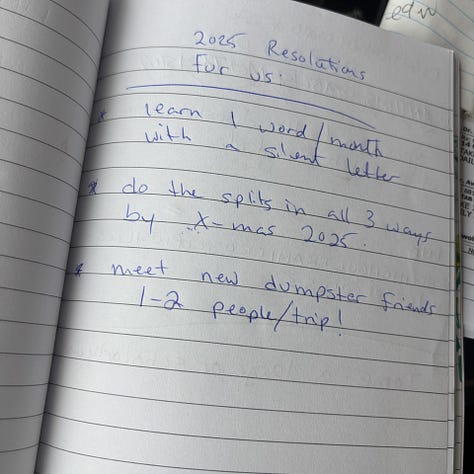 2025 Resolutions
for us:
* learn 1 word/month
with a silent letter
* do the splits in all 3 ways
by X-mas 2025.
* meet new dumpster friends
1-2 people/trip!